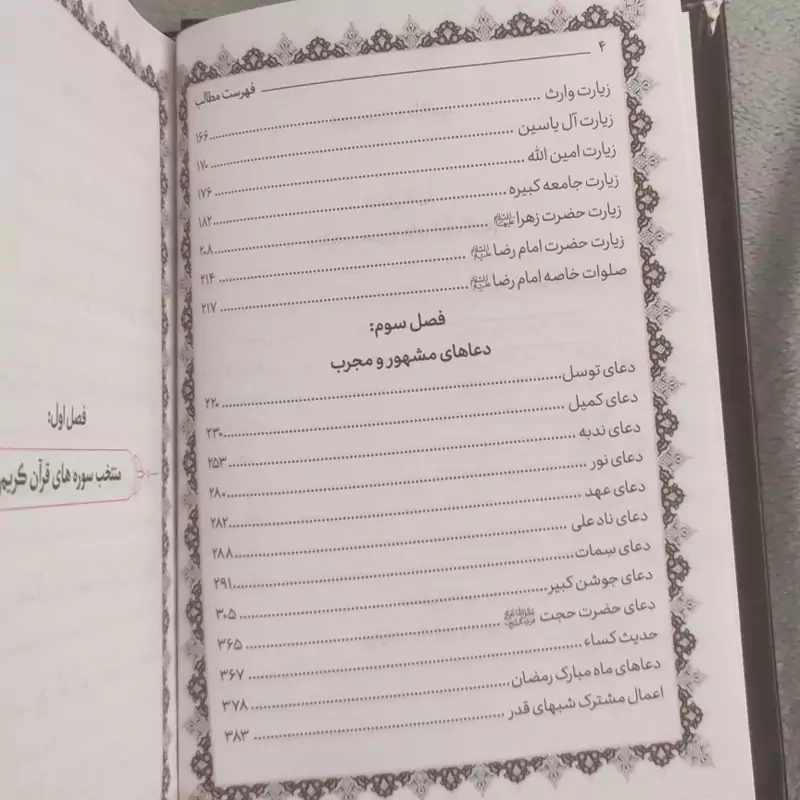 ۴
فهرست مطالب
زیارت وارث ........ ۱۶۶
زیارت آل یاسین ........ ۱۷۰
زیارت امین الله ........ ۱۷۶
زیارت جامعه کبیره ........ ۱۸۲
زیارت حضرت زهرا ........ ۲۰۸
زیارت حضرت امام رضا ........ ۲۱۴
صلوات خاصه امام رضا ........ ۲۱۷
فصل سوم:
دعاهای مشهور و مجرب
دعای توسل ........ ۲۲۰
دعای کمیل ........ ۲۳۰
دعای ندبه ........ ۲۵۳
دعای نور ........ ۲۸۰
دعای عهد ........ ۲۸۲
دعای نادعلی ........ ۲۸۸
دعای سِمات ........ ۲۹۱
دعای جوشن کبیر ........ ۳۰۵
دعای حضرت حجت ........ ۳۶۵
حدیث کساء ........ ۳۶۷
دعاهای ماه مبارک رمضان ........ ۳۷۸
اعمال مشترک شبهای قدر ........ ۳۸۳
فصل اول:
منتخب سوره های قرآن کریم